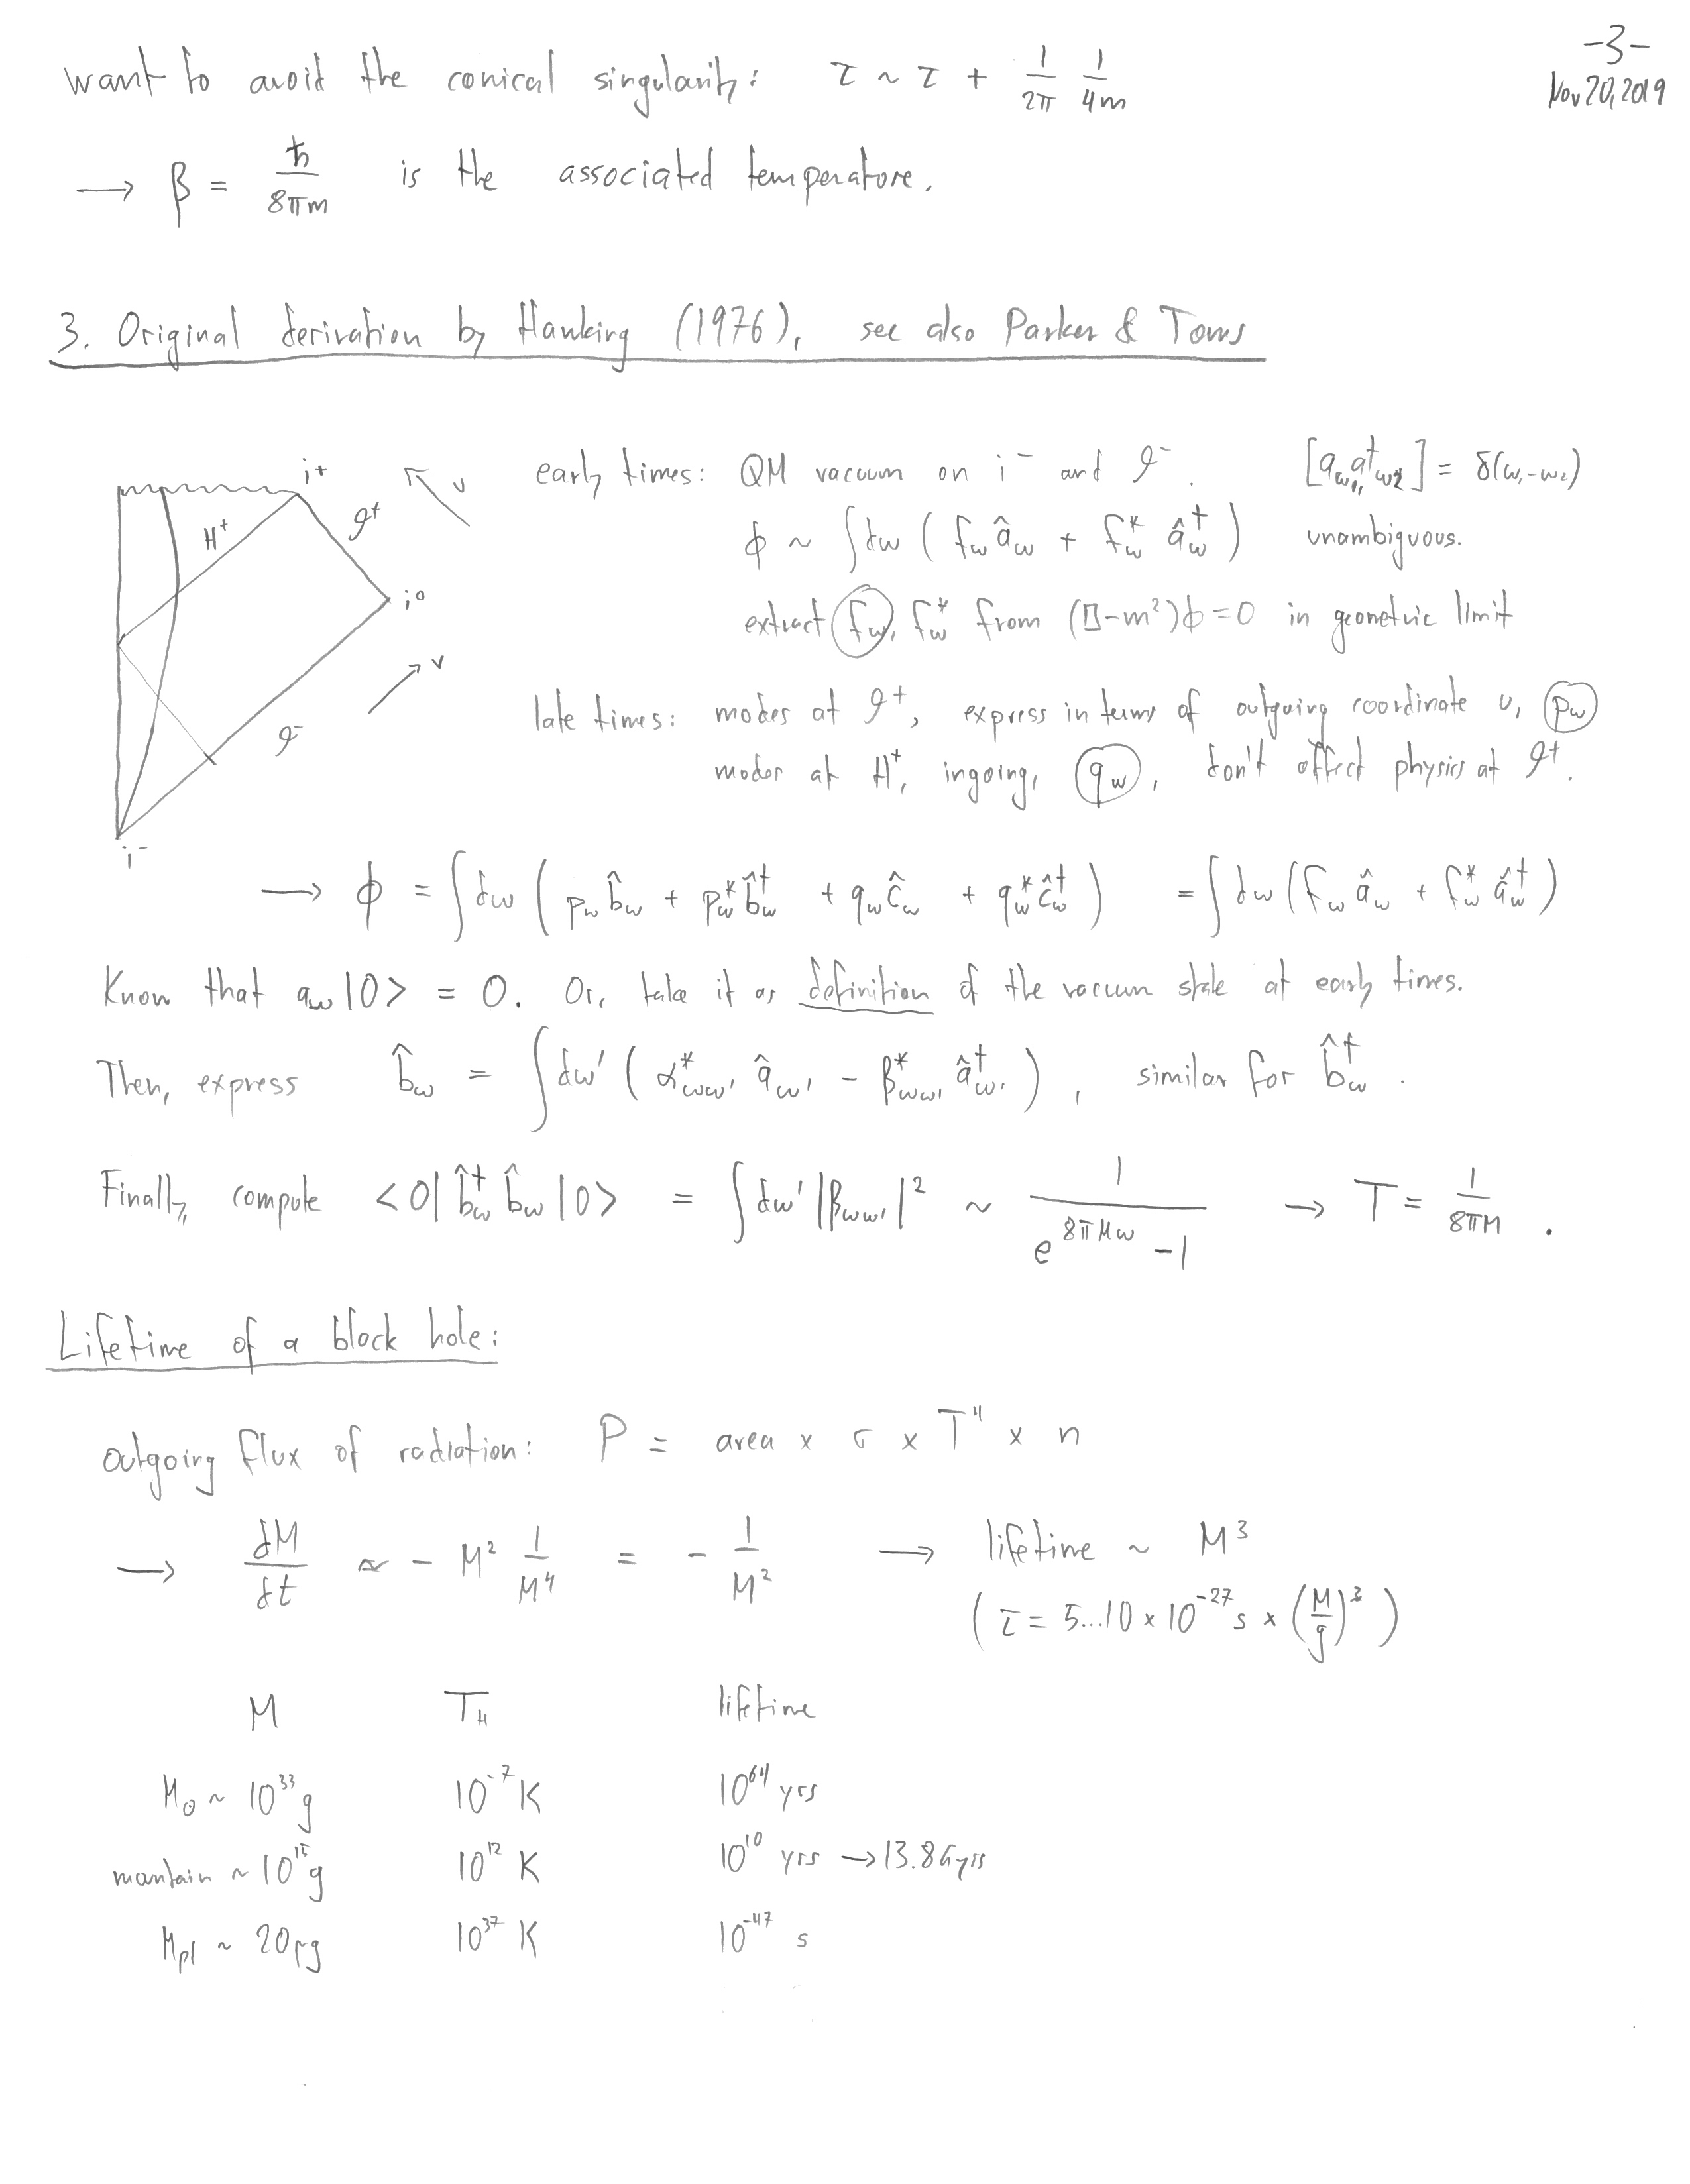 -3-
Nov 20, 2019
want to avoid the conical singularity: τ ~ τ + 1/2π 1/4m
→ β = ħ/8πm is the associated temperature.
3. Original derivation by Hawking (1976), see also Parker & Toms
i⁺
u
H⁺
𝓘⁺
i⁰
v
𝓘⁻
i⁻
early times: QM vacuum on i⁻ and 𝓘⁻. [a_ω₁, a†_ω₂] = δ(ω₁-ω₂)
ϕ ~ ∫dω ( f_ω â_ω + f*_ω â†_ω ) unambiguous.
extract f_ω, f*_ω from (□-m²)ϕ = 0 in geometric limit
late times: modes at 𝓘⁺, express in terms of outgoing coordinate u, p_ω
modes at H⁺, ingoing, q_ω, don't affect physics at 𝓘⁺.
→ ϕ = ∫dω ( p_ω b̂_ω + p*_ω b̂†_ω + q_ω ĉ_ω + q*_ω ĉ†_ω ) = ∫dω ( f_ω â_ω + f*_ω â†_ω )
Know that a_ω |0> = 0. Or, take it as definition of the vacuum state at early times.
Then, express b̂_ω = ∫dω' ( α*_ωω' â_ω' - β*_ωω' â†_ω' ), similar for b̂†_ω.
Finally, compute <0| b̂†_ω b̂_ω |0> = ∫dω' |β_ωω'|² ~ 1/(e^{8πMω} - 1) → T = 1/8πM.
Lifetime of a black hole:
outgoing flux of radiation: P = area × σ × T⁴ × n
→ dM/dt ∝ - M² 1/M⁴ = - 1/M² → lifetime ~ M³
( τ = 5...10 × 10⁻²⁷ s × (M/g)³ )
M T_H lifetime
M_⊙ ~ 10³³ g 10⁻⁷ K 10⁶⁴ yrs
mantain ~ 10¹⁵ g 10¹² K 10¹⁰ yrs → 13.8 Gyrs
M_pl ~ 20 μg 10³² K 10⁻⁴⁷ s